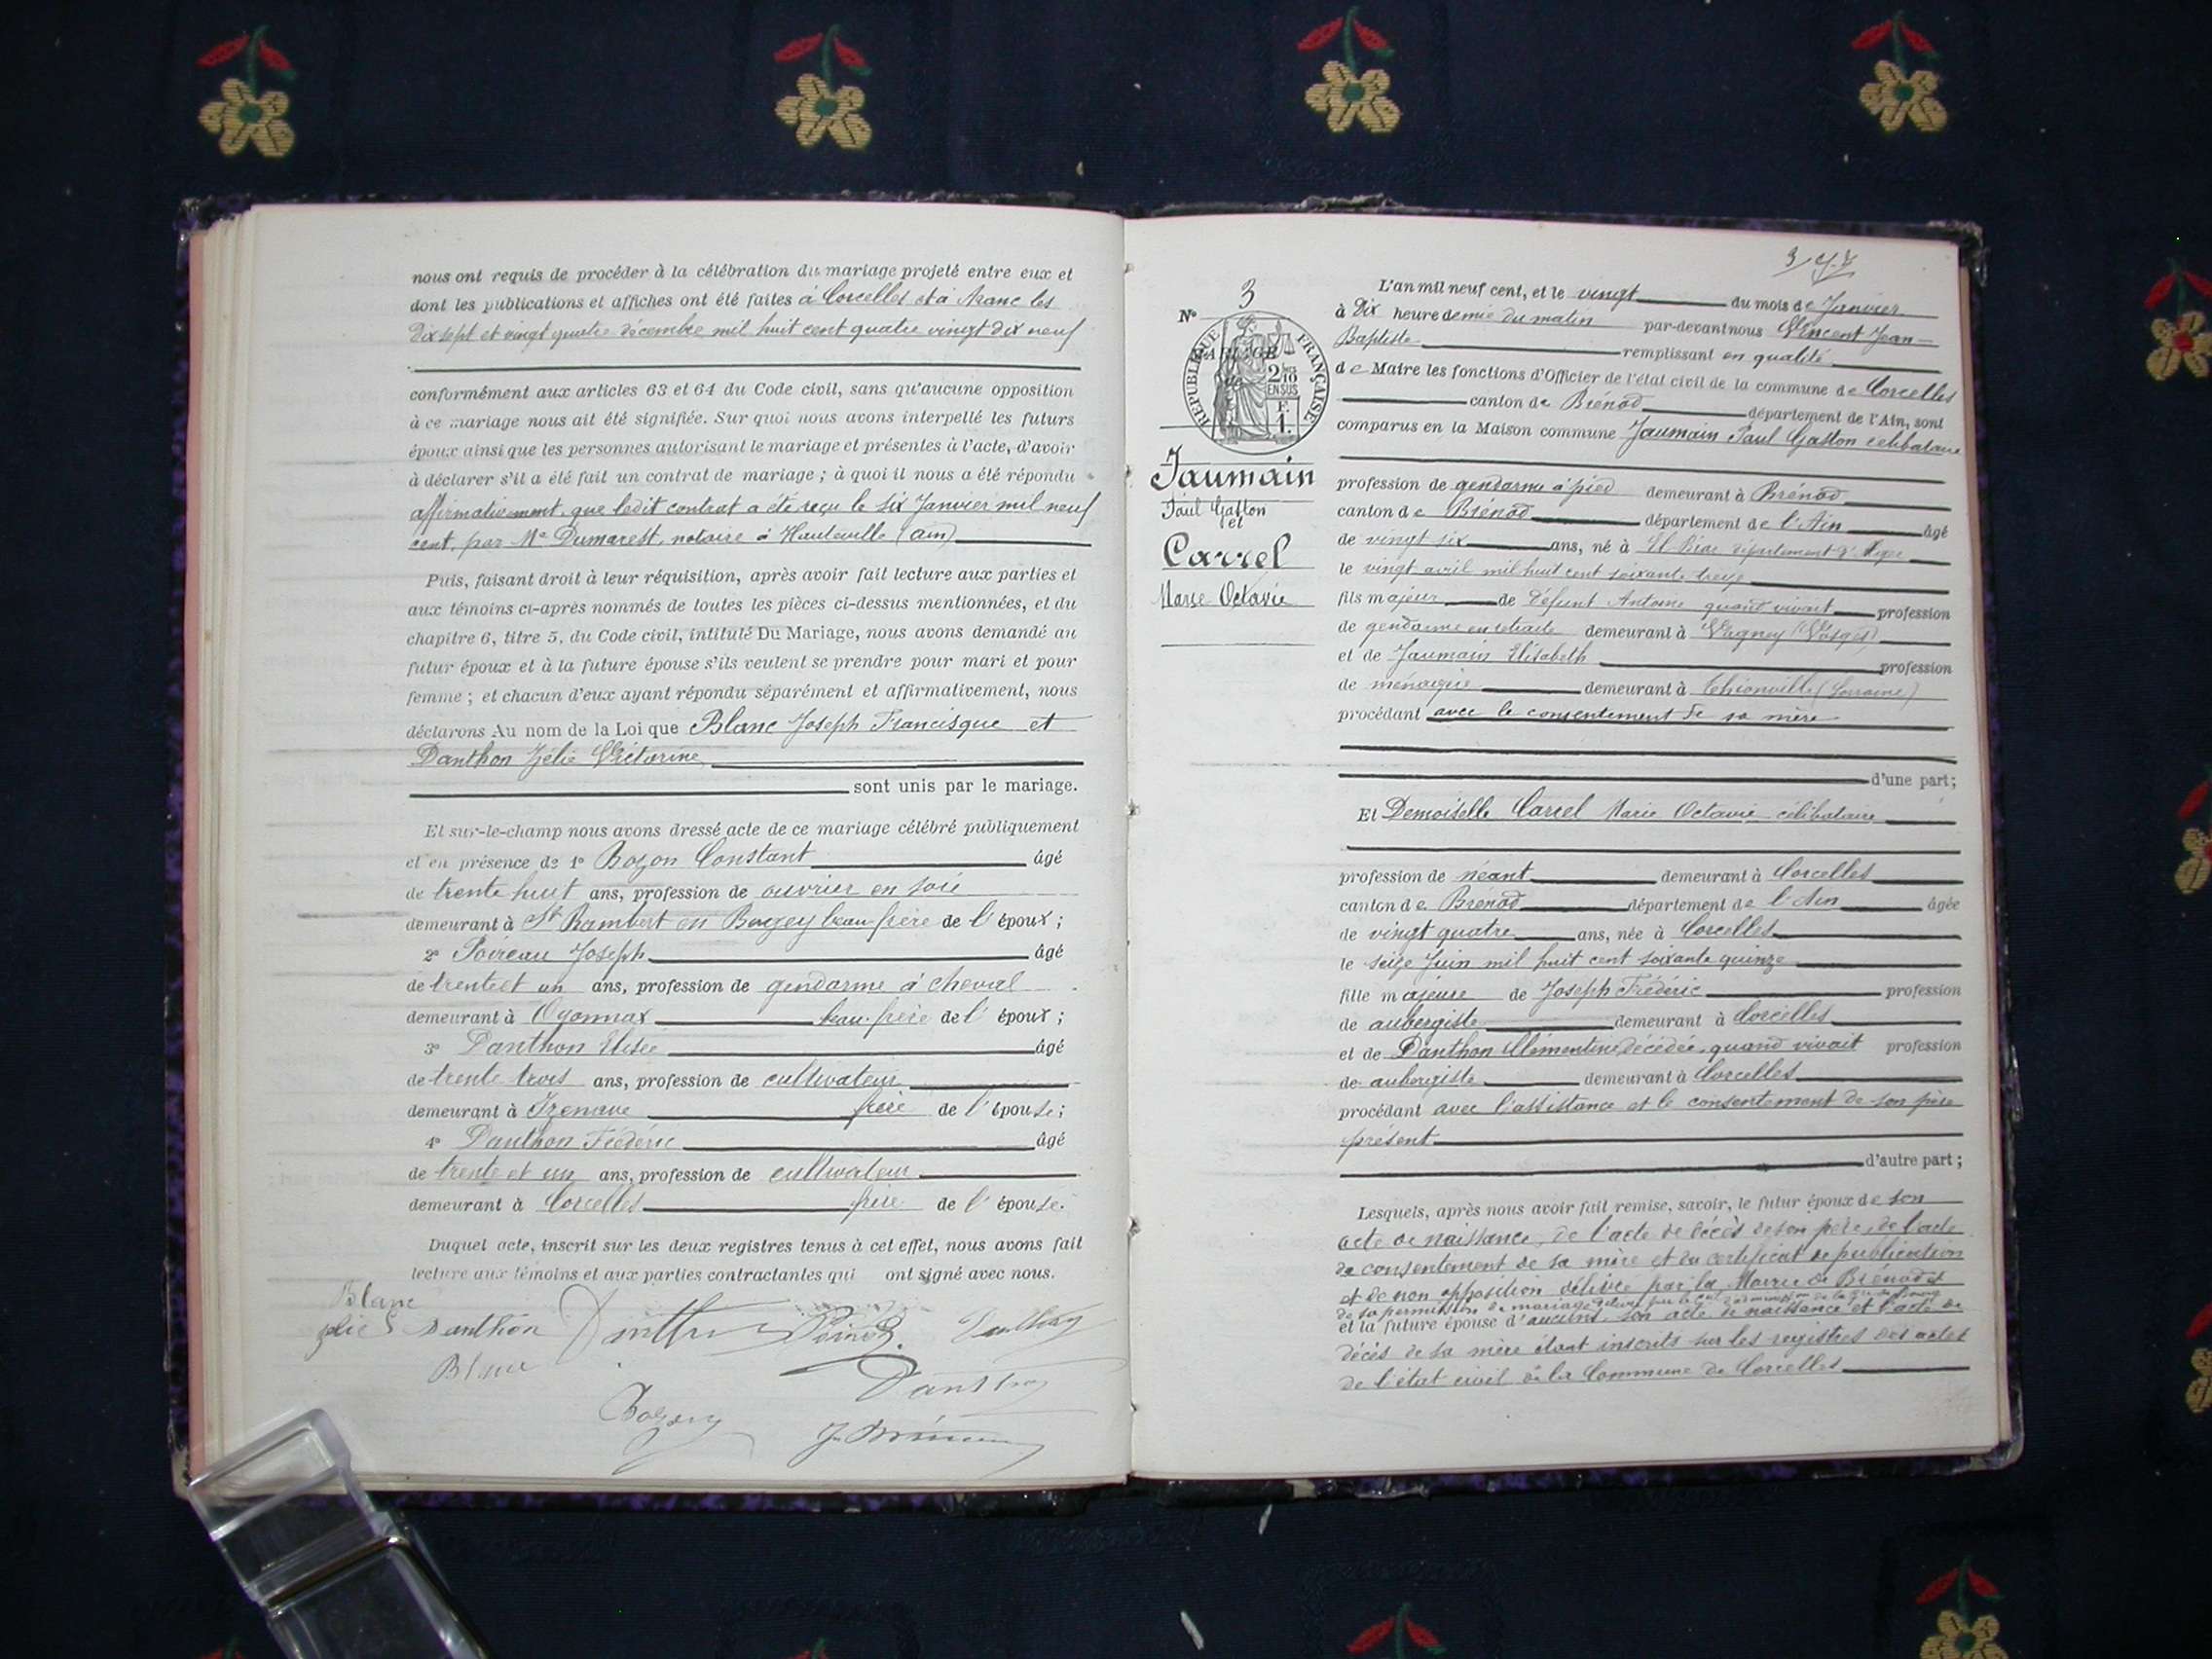 nous ont requis de procéder à la célébration du mariage projeté entre eux et
dont les publications et affiches ont été faites à Corcelles et à Aranc les
Dix sept et vingt quatre décembre mil huit cent quatre vingt dix neuf
conformément aux articles 63 et 64 du Code civil, sans qu'aucune opposition
à ce mariage nous ait été signifiée. Sur quoi nous avons interpellé les futurs
époux ainsi que les personnes autorisant le mariage et présentes à l'acte, d'avoir
à déclarer s'il a été fait un contrat de mariage ; à quoi il nous a été répondu
affirmativement que ledit contrat a été reçu le six Janvier mil neuf
cent, par Me Dumarest, notaire à Hauteville (ain)
Puis, faisant droit à leur réquisition, après avoir fait lecture aux parties et
aux témoins ci-après nommés de toutes les pièces ci-dessus mentionnées, et du
chapitre 6, titre 5, du Code civil, intitulé Du Mariage, nous avons demandé au
futur époux et à la future épouse s'ils veulent se prendre pour mari et pour
femme ; et chacun d'eux ayant répondu séparément et affirmativement, nous
déclarons Au nom de la Loi que Blanc Joseph Francisque et
Danthon Zélie Victorine
sont unis par le mariage.
Et sur-le-champ nous avons dressé acte de ce mariage célébré publiquement
et en présence de 1° Bozon Constant âgé
de trente huit ans, profession de ouvrier en soie
demeurant à St Rambert en Bugey beau-frère de l'époux ;
2° Poireau Joseph âgé
de trente et un ans, profession de gendarme à cheval
demeurant à Oyonnax beau-frère de l'époux ;
3° Danthon Elisée âgé
de trente trois ans, profession de cultivateur
demeurant à Izenave frère de l'épouse ;
4° Danthon Frédéric âgé
de trente et un ans, profession de cultivateur
demeurant à Corcelles frère de l'épouse.
Duquel acte, inscrit sur les deux registres tenus à cet effet, nous avons fait
lecture aux témoins et aux parties contractantes qui ont signé avec nous.
Blanc
Zélie Danthon
Blanc
Danthon
Bozon
N° 3
RÉPUBLIQUE FRANÇAISE
MARIAGE
2/10 EN SUS
Jaumain
Paul Gaston
et
Carrel
Marie Octavie
L'an mil neuf cent, et le vingt du mois de Janvier
à Dix heure demie du matin par-devant nous Vincent Jean-
Baptiste remplissant en qualité
de Maire les fonctions d'Officier de l'état civil de la commune de Corcelles
canton de Brénod département de l'Ain, sont
comparus en la Maison commune Jaumain Paul Gaston célibataire
profession de gendarme à pied demeurant à Brénod
canton de Brénod département de l'Ain âgé
de vingt six ans, né à El Biar département d'Alger
le vingt avril mil huit cent soixante treize
fils majeur de défunt Antoine quand vivait profession
de gendarme en retraite demeurant à Vagney (Vosges)
et de Jaumain Elisabeth profession
de ménagère demeurant à Thionville (Lorraine)
procédant avec le consentement de sa mère
d'une part ;
Et Demoiselle Carrel Marie Octavie célibataire
profession de néant demeurant à Corcelles
canton de Brénod département de l'Ain âgée
de vingt quatre ans, née à Corcelles
le seize Juin mil huit cent soixante quinze
fille majeure de Joseph Frédéric profession
de aubergiste demeurant à Corcelles
et de Danthon Clémentine décédée, quand vivait profession
de aubergiste demeurant à Corcelles
procédant avec l'assistance et le consentement de son père
présent
d'autre part ;
Lesquels, après nous avoir fait remise, savoir, le futur époux de son
acte de naissance, de l'acte de décès de son père, de l'acte
de consentement de sa mère et du certificat de publication
et de non opposition délivré par la Mairie de Brénod et
de sa permission de mariage
et la future épouse d'aucuns, son acte de naissance et l'acte de
décès de sa mère étant inscrits sur les registres des actes
de l'état civil de la Commune de Corcelles